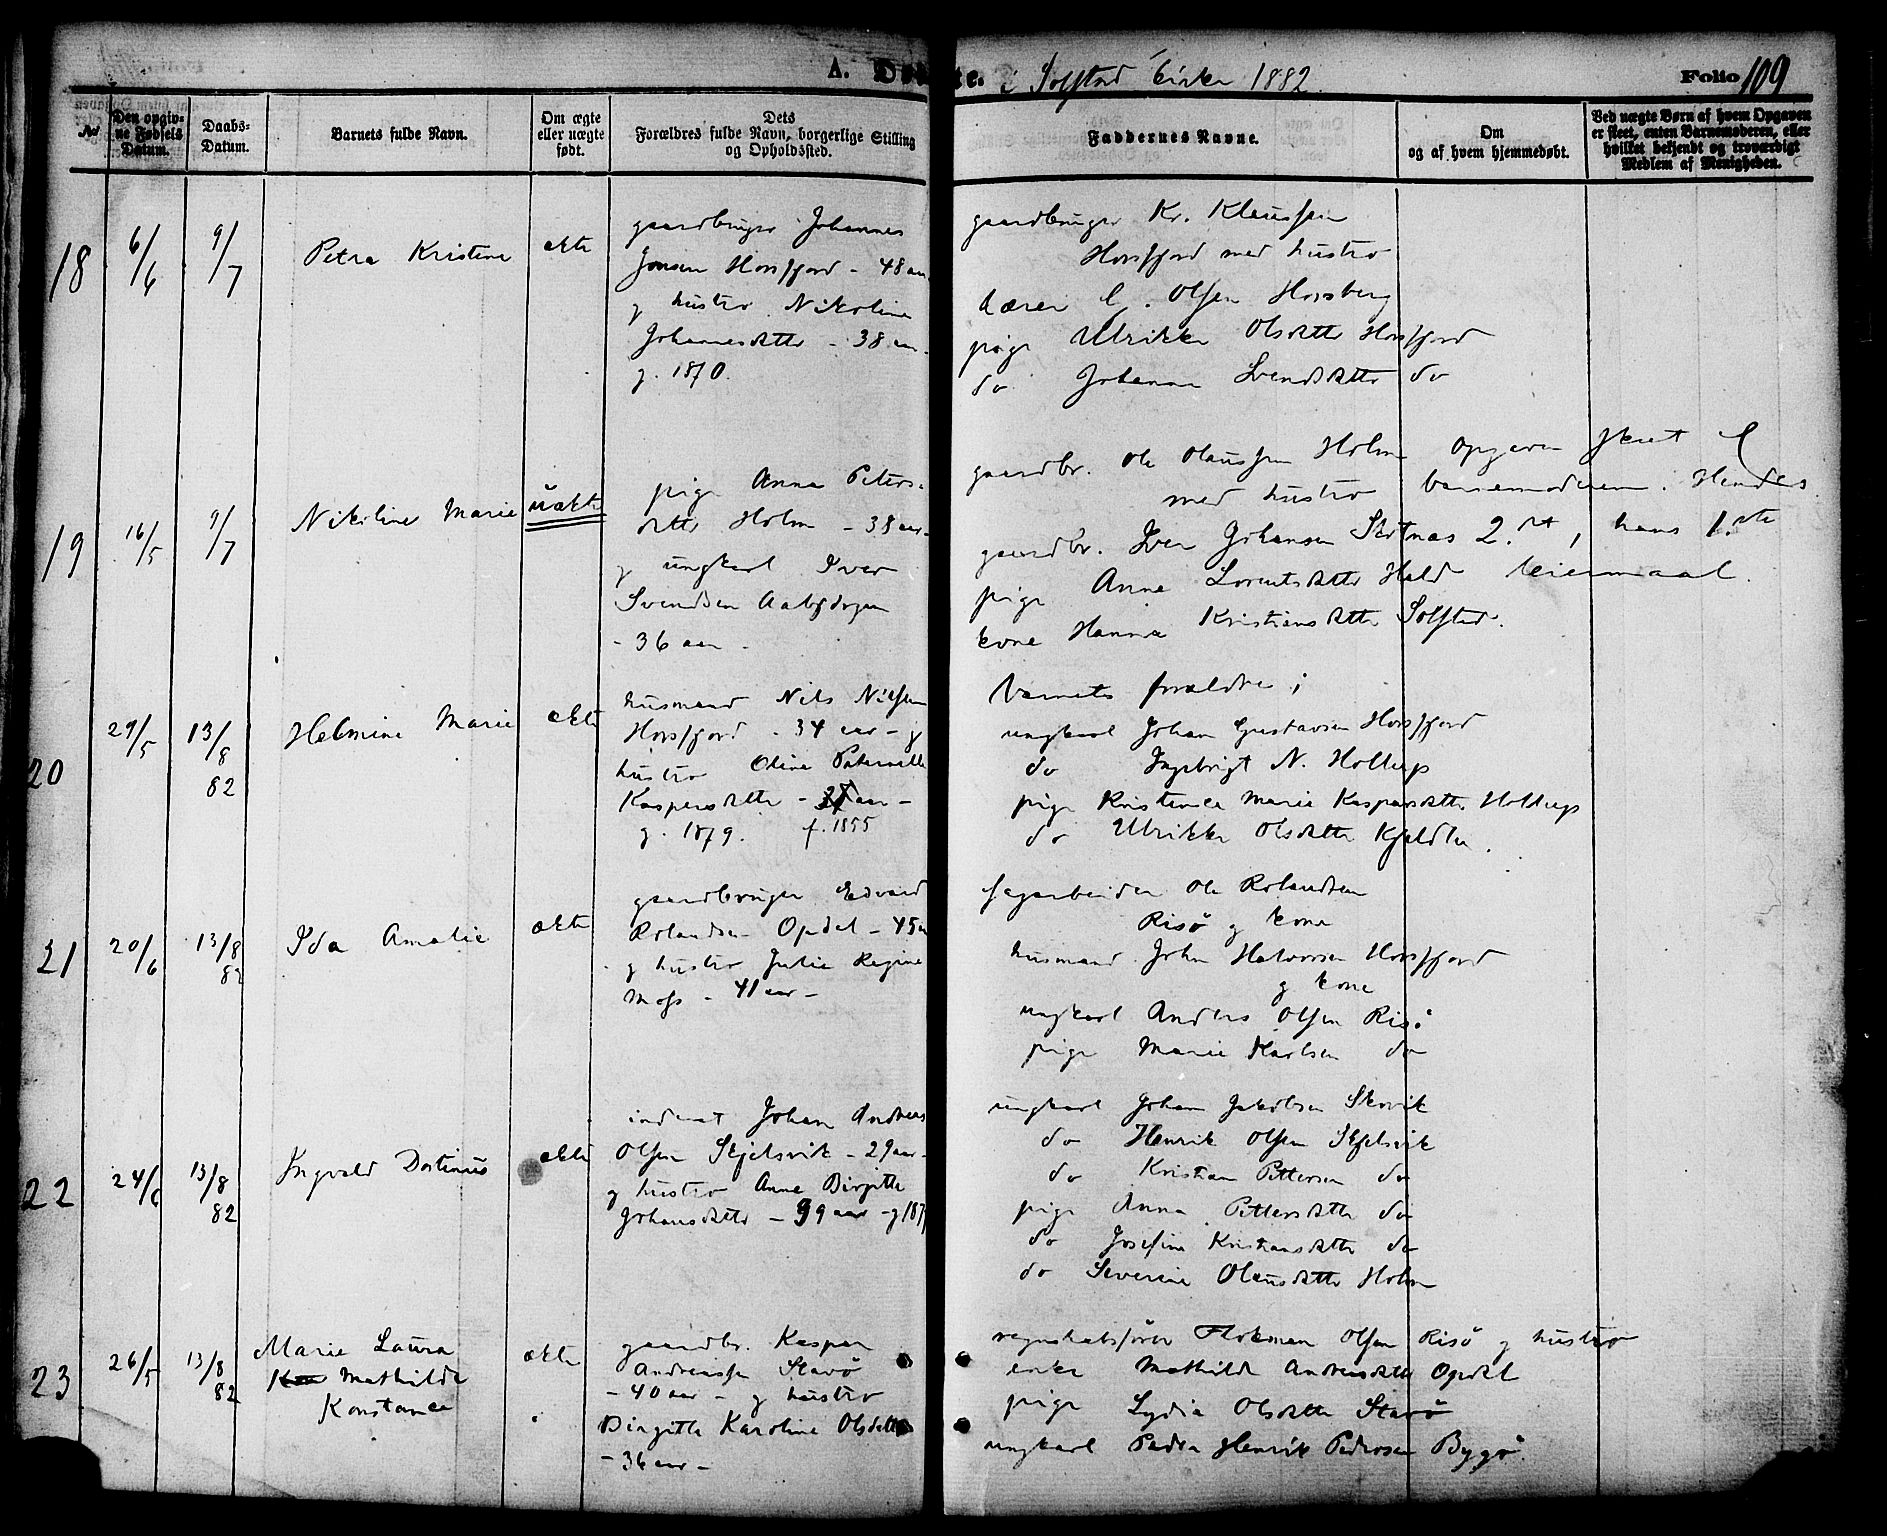 A. Døbte. i Solstad kirke 1882. Folio 109
No
Den opgivne Fødsels Datum.
Daabs-Datum.
Barnets fulde Navn.
Om ægte eller uægte født.
Dets Forældres fulde Navn, borgerlige Stilling og Opholdssted.
Faddernes Navne.
Om og af hvem hjemmedøbt.
Ved uægte Børn af hvem Opgaven er skeet, enten Barnemoderen, eller hvilket bekjendt og troværdigt Medlem af Menigheden.
18
6/6
9/7
Petra Kristine
ekte
gaardbruger Johannes
Jonsen Horsfjord - 48 aar
g hustro Nikoline
Johannesdatter - 38 aar -
g. 1870.
gaardbruger Kr. Klaussen
Horsfjord med hustro
lærer C. Olsen Horsberg
pige Ulrikke Olsdatter Horsfjord
do Johanna Svendsdatter do
19
16/5
9/7
Nikoline Marie
uekte
pige Anna Peters-
datter Holm - 38 aar -
g ungkarl Iver
Svendsen
- 36 aar -
gaardbr. Ole Olaussen Holm
med hustro
gaardbr. Iver Johansen Skotnæs
pige Anne Lorentsdatter Hald
kone Hanna Kristiansdatter Solstad.
Opgaven skeet af
barnemoderen. Hendes
2.det, hans 1.ste
leiermaal.
20
29/5
13/8
82
Helmine Marie
ekte
husmand Nils Nilssen
Horsfjord - 34 aar - g
hustro Oline Peternelle
Kaspersdatter - aar -
g. 1879. f. 1855
barnets forældre;
ungkarl Johan Gustavsen Horsfjord
do Ingebrigt N. Holterp
pige Kristence Marie Kaspersdatter Holdterp
do Ulrikke Olsdatter Kjeldli.
21
20/6
13/8
82
Ida Amalie
ekte
gaardbruger Edvard
Rolandsen Opdal - 45 aar
g hustro Julie Regine
Moss - 41 aar -
sagarbeider Ole Rolandsen
Risø g kone
husmand John Halvorsen Horsfjord
g kone
ungkarl Anders Olsen Risø
pige Marie Karlsen do
22
24/6
13/8
82
Ingvald Dortinus
ekte
inderst Johan Andreas
Olsen Skjelsvik - 29 aar -
g hustro Anne Birgitte
Johansdatter - 39 aar - g 187
ungkarl Johan Jakobsen Skevik
do Henrik Olsen Skjelsvik
do Kristian Pettersen do
pige Anna Pettersdatter do
do Josefine Kristiansdatter do
do Severine Olausdatter Holm
23
26/5
13/8
82
Marie Laura
Mathilde
Konstance
ekte
gaardbr. Kasper
Andreassen Stavø
- 40 aar - g hustro
Birgitte Karoline Olsdatter
- 36 aar -
regnskabsfører Olsen Risø g hustro
enke Mathilde Andreasdatter Opdal
pige Lydia Olsdatter Stavø
ungkarl Peder Henrik Pedersen Bygø.